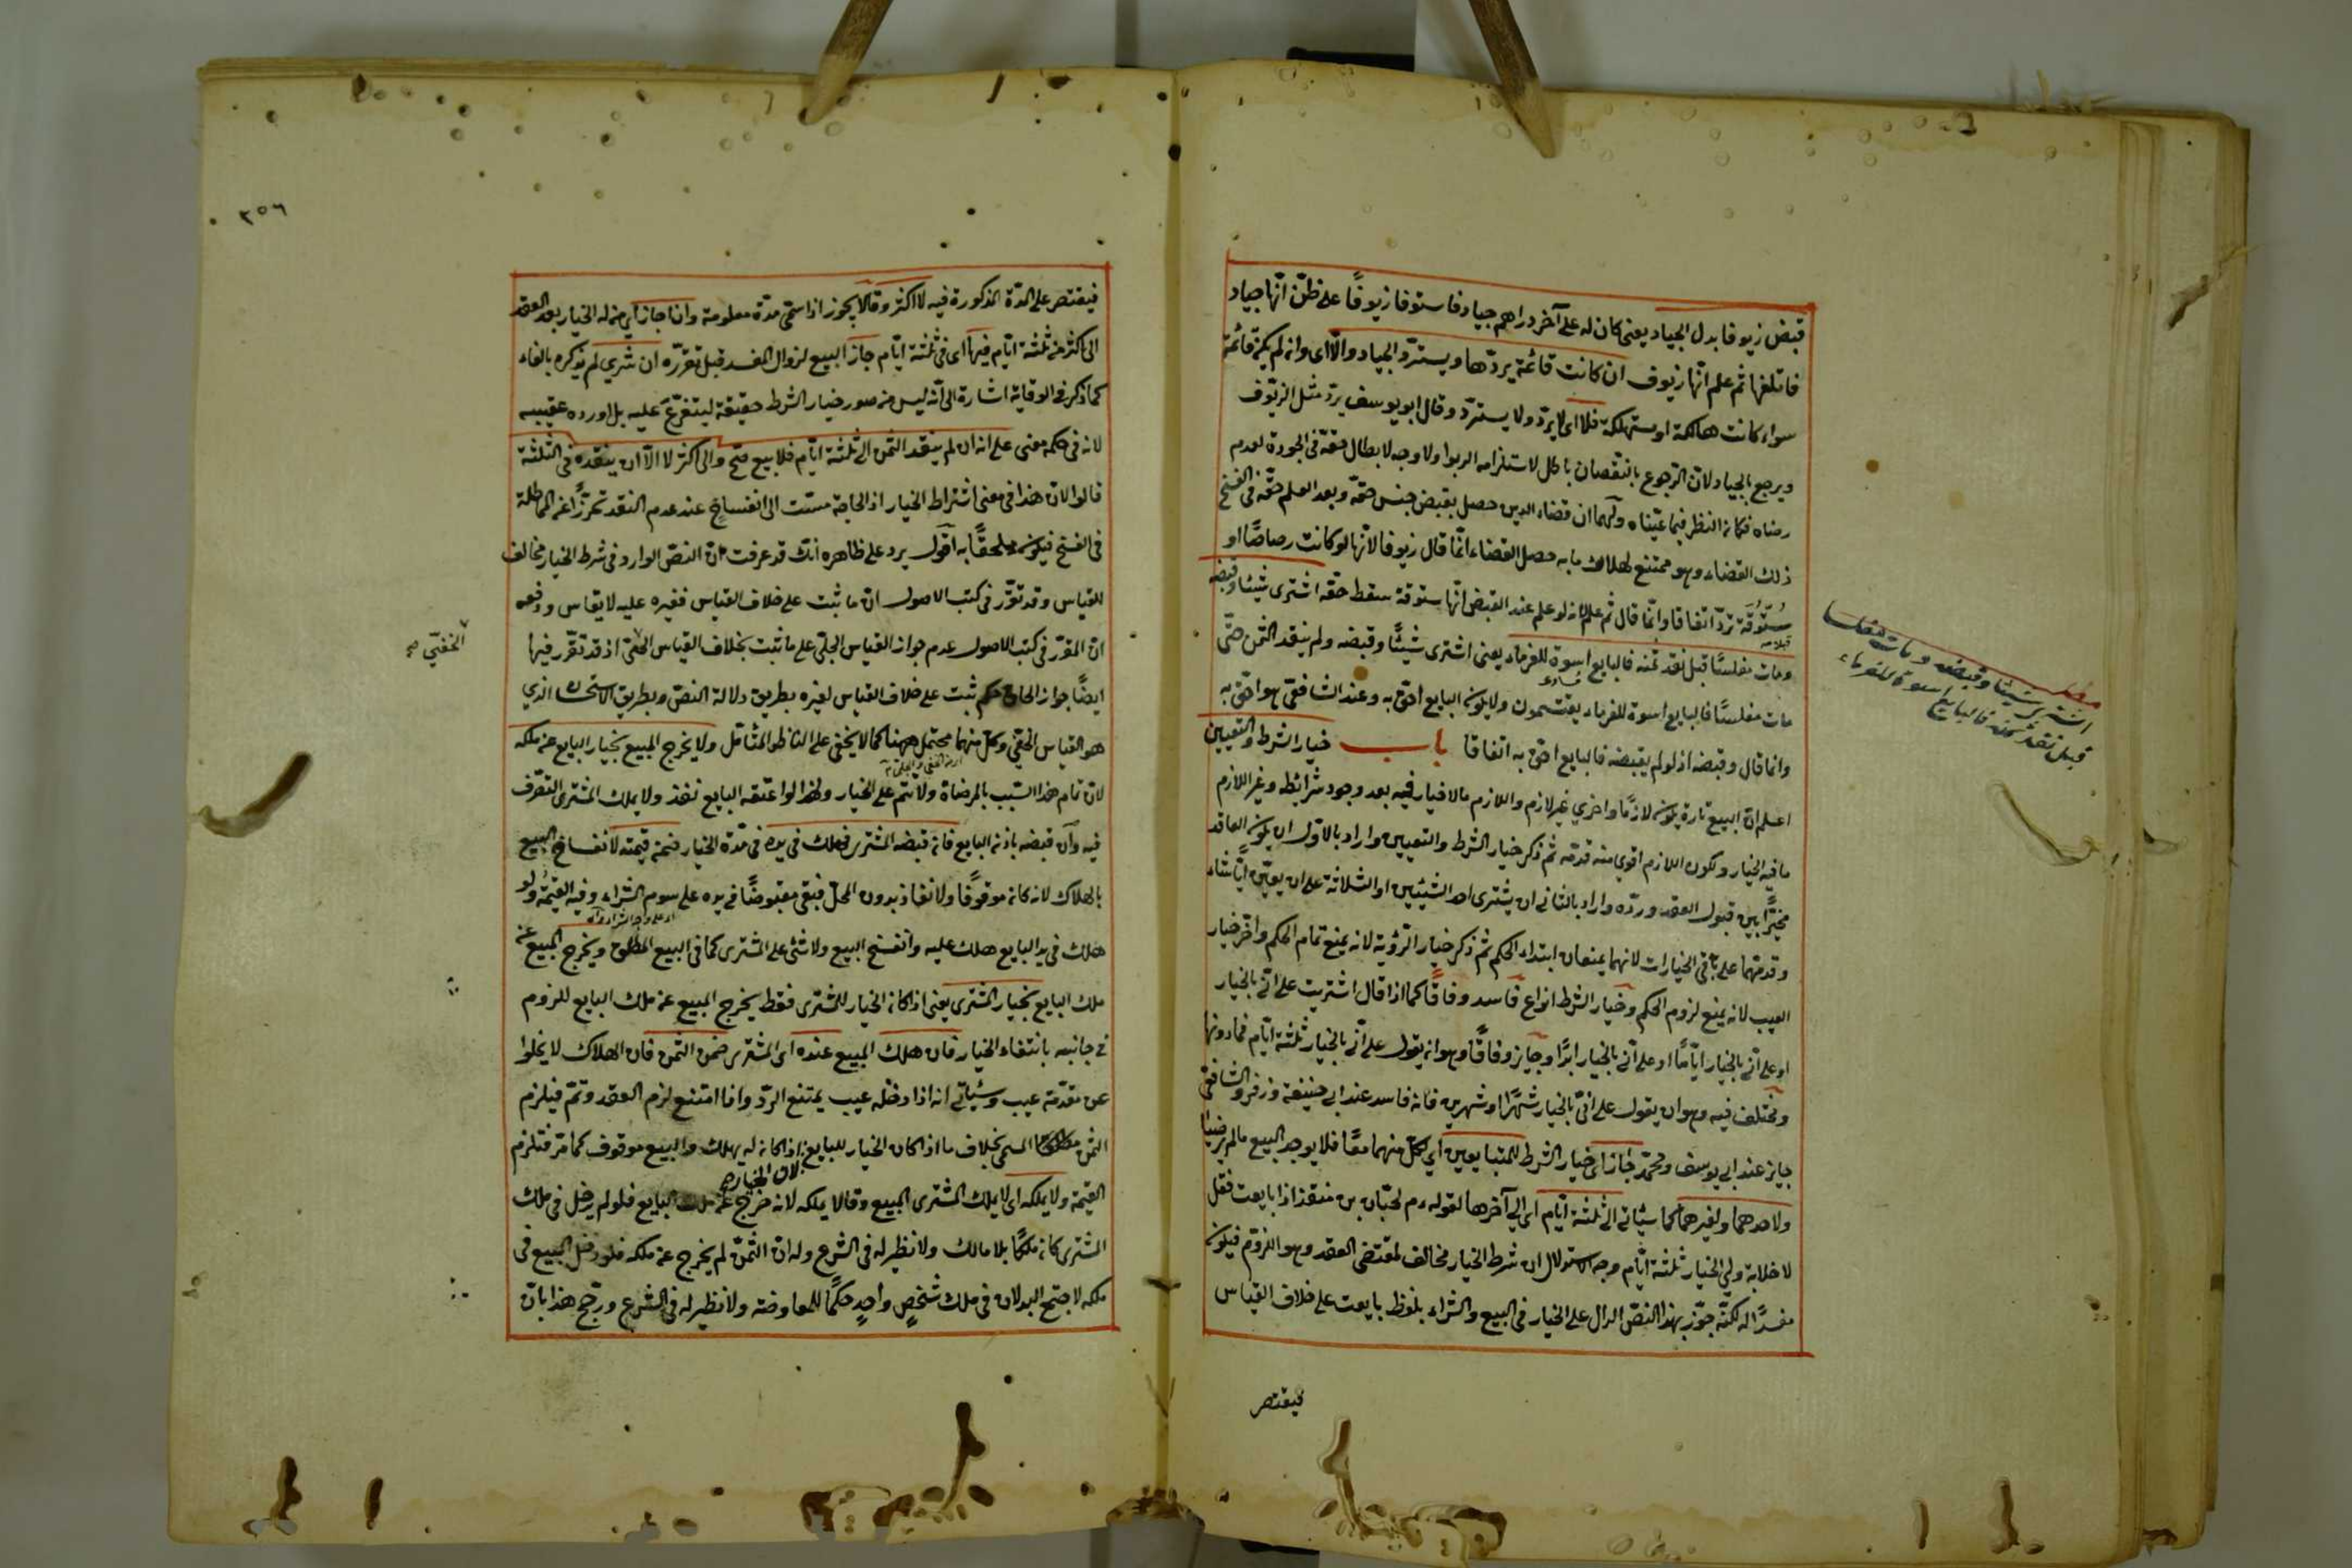 قبض زيوفا بدل الجياد يعنى كان له على آخر دراهم جياد فاستوفا زيوفًا على ظن انّها جياد
فاتلفها ثم علم انّها زيوف ان كانت قائمة يردّها ويستردّ الجياد والّا اى وان لم يكن قائمة
سواء كانت هالكة او مستهلكة فلا اى لا يردّ ولا يستردّ وقال ابو يوسف يردّ مثل الزيّوف
ويرجع بالجياد لانّ الرّجوع بالنّقصان باطل لاستلزامه الربوا ولا وجه لابطال حقّه فى الجودة لعدم
رضاه فكان النظر فيما عيّناه ولهما ان قضاء الدين حصل بقبض جنس حقّه وبعد العلم حقّه فى الفسخ
ذلك القضاء وهو ممتنع لهلاك ما به حصل القضاء انّما قال زيوفا لانّها لو كانت رصاصًا او
سُتّوقَة تردّ اتفاقا وانّما قال ثم علم لانه لو علم عند القبض انّها ستوقة سقط حقّه اشترى شيئا وقبضه
ومات مفلسًا قبل نقد ثمنه فالبايع اسوة للغرماء يعنى اشترى شيئًا وقبضه ولم ينقد الثمن حتّى
مات مفلسًا فالبايع اسوة للغرماء يقتسمون ولا يكون البايع احقّ به وعند الشافعىّ هو احقّ به
وانما قال وقبضه اذ لو لم يقبضه فالبايع احقّ به اتفاقا باب خيار الشرط والتعيين
اعلم انّ البيع تارة يكون لازمًا واخرى غير لازم واللازم ما لا خيار فيه بعد وجود شرائطه وغير اللازم
ما فيه الخيار ولكون اللازم اقوى منه قدّمه ثم ذكر خيار الشرط والتعيين واراد بالاوّل ان يكون العاقد
مخيّرًا بين قبول العقد وردّه واراد بالثانى ان يشترى احد الشيئين او الثلاثة على ان يعيّن ايًّا شاء
وقدّمهما على باقى الخيارات لانهما يمنعان ابتداء الحكم ثم ذكر خيار الرّؤية لانه يمنع تمام الحكم واخّر خيار
العيب لانه يمنع لزوم الحكم وخيار الشرط انواع فاسد وفاقًا كما اذا قال اشتريت على انّى بالخيار
او على انّى بالخيار ايّامًا او على انّى بالخيار ابدًا وجايز وفاقًا وهو ان يقول على انّى بالخيار ثلثة ايّام فما دونها
ومختلف فيه وهو ان يقول على انّى بالخيار شهرًا او شهرين فانه فاسد عند ابى حنيفة وزفر والشافعى
جايز عند ابى يوسف ومحمّد جاز اى خيار الشرط للمتبايعين اى لكلّ منهما معًا فلا يوجد البيع ما لم يرضيا
ولاحدهما ولغيرهما كما سيأتى الى ثلثة ايّام اى الى آخرها لقوله ءم لحبّان بن منقذ اذا بايعت فقل
لا خلابة ولى الخيار ثلثة ايّام وجه الاستدلال ان شرط الخيار مخالف لمقتضى العقد وهو اللزوم فيكون
مفسدًا له لكنّه جوّز بهذا النصّ الدال على الخيار فى البيع والشراء بلفظ بايعت على خلاف القياس
فيقتصر
مطلب
اشترى شيئا وقبضه ومات مفلسا
قبل نقد ثمنه فالبايع اسوة للغرماء
٣٥٦
فيقتصر على المدّة المذكورة فيه لا اكثر وقالا يجوز اذا سمّى مدّة معلومة وان اجاز اى من له الخيار بعد العقد
الى اكثر من ثلثة ايّام فيها اى فى ثلثة ايّام جاز البيع لزوال المفسد قبل تقرّره ان شرى لم يذكره بالفاء
كما ذكر فى الوقاية اشارة الى انّه ليس من صور خيار الشرط حقيقة ليتفرّع عليه بل اورده عقيبه
لانه فى حكمه معنى على انه ان لم ينقد الثمن الى ثلثة ايّام فلا بيع صحّ والى اكثر لا الّا ان ينقده فى الثلثة
قالوا لانّ هذا فى معنى اشتراط الخيار اذ الحاجة مسّت الى انفساخ عند عدم النقد تحرّزًا عن المماطلة
فى الفسخ فيكون ملحقًا به اقول يرد على ظاهره انك قد عرفت انّ النصّ الوارد فى شرط الخيار مخالف
للقياس وقد تقرّر فى كتب الاصول ان ما ثبت على خلاف القياس فغيره عليه لا يقاس ودفعه
انّ المقرّر فى كتب الاصول عدم جواز القياس الجلىّ على ما ثبت بخلاف القياس الخفىّ اذ قد تقرّر فيها
الخفىّ صح
ايضًا جواز الحاق حكم ثبت على خلاف القياس لغيره بطريق دلالة النصّ وبطريق الاستحسان الذى
هو القياس الخفىّ وكلّ منهما محتمل ههنا كما لا يخفى على الناظر المتأمّل ولا يخرج المبيع بخيار البايع عن ملكه
لانّ تمام هذا السّبب بالمرضاة ولا تتم على الخيار ولهذا لو اعتقه البايع نفذ ولا يملك المشترى التصرّف
فيه وان قبضه باذن البايع فان قبضه المشترى فهلك فى يده فى مدّة الخيار ضمن قيمته لانفساخ البيع
بالهلاك لانه كان موقوفًا ولا نفاذ بدون المحلّ فبقى مقبوضًا فى يده على سوم الشراء وفيه القيمة ولو
هلك فى يد البايع هلك عليه وانفسخ البيع ولا شئ على المشترى كما فى البيع المطلق ويخرج المبيع عن
ملك البايع بخيار المشترى يعنى اذا كان الخيار للمشترى فقط يخرج المبيع عن ملك البايع للزوم
فى جانبه بانتفاء الخيار فان هلك المبيع عنده اى المشترى ضمن الثمن فان الهلاك لا يخلوا
عن مقدّمة عيب وسيأتى انه اذا دخله عيب يمتنع الردّ واذا امتنع لزم العقد وتمّ فيلزم
الثمن المسمّى بخلاف ما اذا كان الخيار للبايع اذا كان له يهلك والبيع موقوف كما مرّ فتلزم
القيمة ولا يملكه اى لا يملك المشترى المبيع وقالا يملكه لانه خرج عن ملك البايع فلو لم يدخل فى ملك
المشترى كان ملكًا بلا مالك ولا نظير له فى الشرع وله انّ الثمن لم يخرج عن ملكه فلو دخل المبيع فى
ملكه لاجتمع البدلان فى ملك شخص واحد حكمًا للمعاوضة ولا نظير له فى الشرع ورجّح هذا بانّ